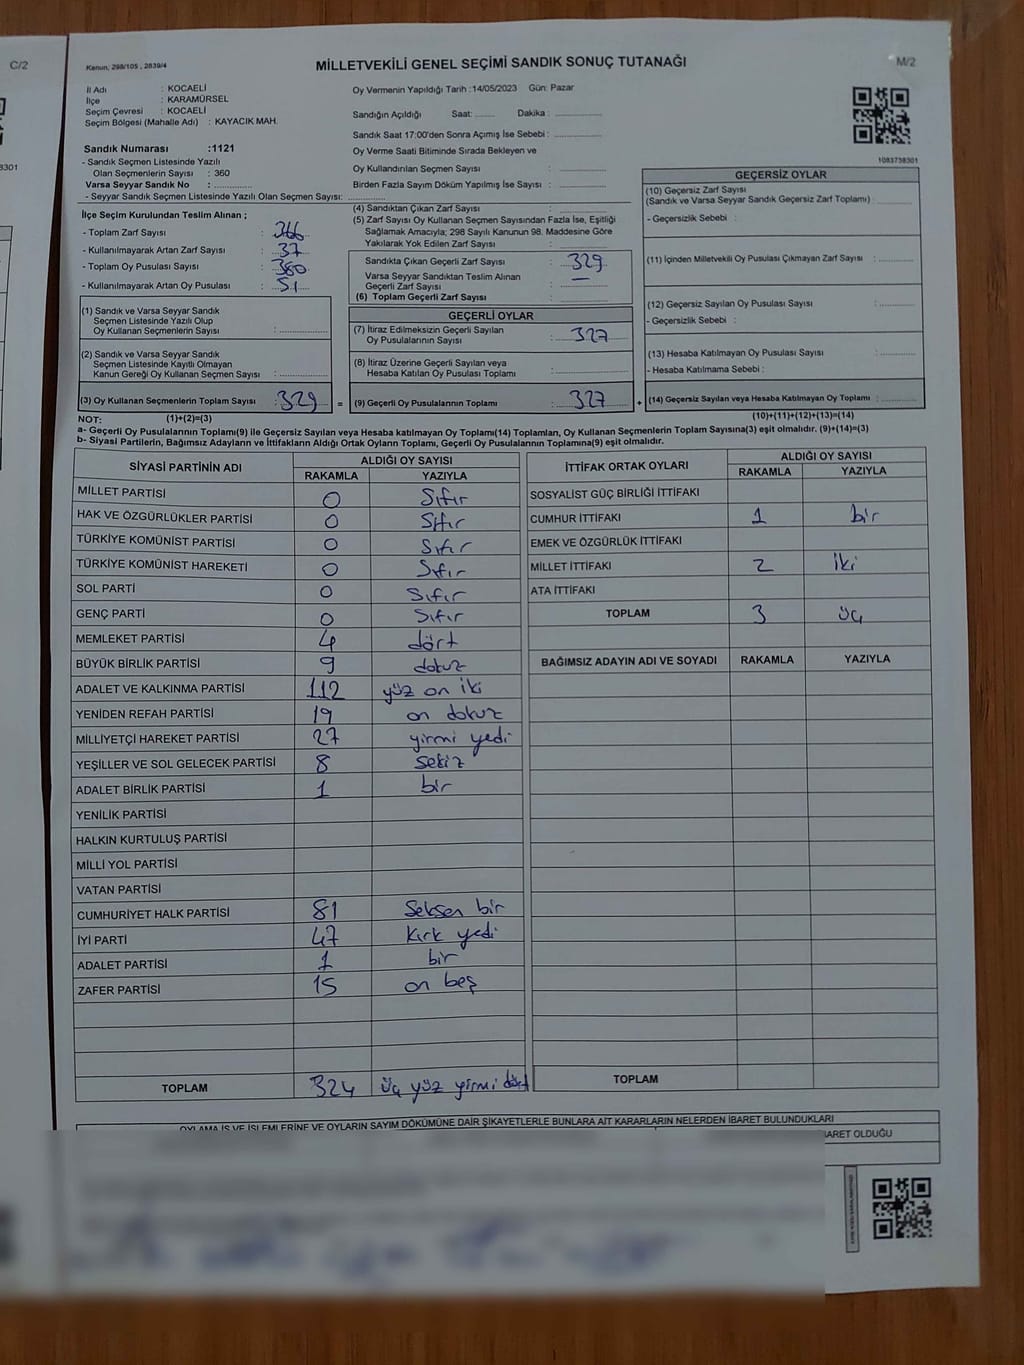 C/2
8301
Kanun; 298/105 , 2839/4
MİLLETVEKİLİ GENEL SEÇİMİ SANDIK SONUÇ TUTANAĞI
M/2
İl Adı : KOCAELİ
İlçe : KARAMÜRSEL
Seçim Çevresi : KOCAELİ
Seçim Bölgesi (Mahalle Adı) : KAYACIK MAH.
Sandık Numarası :1121
- Sandık Seçmen Listesinde Yazılı
Olan Seçmenlerin Sayısı : 360
Varsa Seyyar Sandık No : ..............
- Seyyar Sandık Seçmen Listesinde Yazılı Olan Seçmen Sayısı: ..............
Oy Vermenin Yapıldığı Tarih :14/05/2023 Gün: Pazar
Sandığın Açıldığı Saat: ....... Dakika : ..............
Sandık Saat 17:00'den Sonra Açımış İse Sebebi : ..............
Oy Verme Saati Bitiminde Sırada Bekleyen ve
Oy Kullandırılan Seçmen Sayısı : ..............
Birden Fazla Sayım Döküm Yapılmış İse Sayısı : ..............
1083738301
İlçe Seçim Kurulundan Teslim Alınan ;
- Toplam Zarf Sayısı : 366
- Kullanılmayarak Artan Zarf Sayısı : 37
- Toplam Oy Pusulası Sayısı : 380
- Kullanılmayarak Artan Oy Pusulası : 51
(1) Sandık ve Varsa Seyyar Sandık
Seçmen Listesinde Yazılı Olup
Oy Kullanan Seçmenlerin Sayısı : ..............
(2) Sandık ve Varsa Seyyar Sandık
Seçmen Listesinde Kayıtlı Olmayan
Kanun Gereği Oy Kullanan Seçmen Sayısı : ..............
(3) Oy Kullanan Seçmenlerin Toplam Sayısı : 329 =
(4) Sandıktan Çıkan Zarf Sayısı : ..............
(5) Zarf Sayısı Oy Kullanan Seçmen Sayısından Fazla İse, Eşitliği
Sağlamak Amacıyla; 298 Sayılı Kanunun 98. Maddesine Göre
Yakılarak Yok Edilen Zarf Sayısı : ..............
Sandıkta Çıkan Geçerli Zarf Sayısı : 329
Varsa Seyyar Sandıktan Teslim Alınan
Geçerli Zarf Sayısı : —
(6) Toplam Geçerli Zarf Sayısı : ..............
GEÇERLİ OYLAR
(7) İtiraz Edilmeksizin Geçerli Sayılan
Oy Pusulalarının Sayısı : 327
(8) İtiraz Üzerine Geçerli Sayılan veya
Hesaba Katılan Oy Pusulası Toplamı : ..............
(9) Geçerli Oy Pusulalarının Toplamı : 327 +
GEÇERSİZ OYLAR
(10) Geçersiz Zarf Sayısı
(Sandık ve Varsa Seyyar Sandık Geçersiz Zarf Toplamı) : ..............
- Geçersizlik Sebebi :
(11) İçinden Milletvekili Oy Pusulası Çıkmayan Zarf Sayısı : ..............
(12) Geçersiz Sayılan Oy Pusulası Sayısı : ..............
- Geçersizlik Sebebi :
(13) Hesaba Katılmayan Oy Pusulası Sayısı : ..............
- Hesaba Katılmama Sebebi :
(14) Geçersiz Sayılan veya Hesaba Katılmayan Oy Toplamı : ..............
NOT: (1)+(2)=(3) (10)+(11)+(12)+(13)=(14)
a- Geçerli Oy Pusulalarının Toplamı(9) ile Geçersiz Sayılan veya Hesaba katılmayan Oy Toplamı(14) Toplamları, Oy Kullanan Seçmenlerin Toplam Sayısına(3) eşit olmalıdır. (9)+(14)=(3)
b- Siyasi Partilerin, Bağımsız Adayların ve İttifakların Aldığı Ortak Oyların Toplamı, Geçerli Oy Pusulalarının Toplamına(9) eşit olmalıdır.
SİYASİ PARTİNİN ADI ALDIĞI OY SAYISI
RAKAMLA YAZIYLA
MİLLET PARTİSİ 0 Sıfır
HAK VE ÖZGÜRLÜKLER PARTİSİ 0 Sıfır
TÜRKİYE KOMÜNİST PARTİSİ 0 Sıfır
TÜRKİYE KOMÜNİST HAREKETİ 0 Sıfır
SOL PARTİ 0 Sıfır
GENÇ PARTİ 0 Sıfır
MEMLEKET PARTİSİ 4 dört
BÜYÜK BİRLİK PARTİSİ 9 dokuz
ADALET VE KALKINMA PARTİSİ 112 yüz on iki
YENİDEN REFAH PARTİSİ 19 on dokuz
MİLLİYETÇİ HAREKET PARTİSİ 27 yirmi yedi
YEŞİLLER VE SOL GELECEK PARTİSİ 8 Sekiz
ADALET BİRLİK PARTİSİ 1 bir
YENİLİK PARTİSİ
HALKIN KURTULUŞ PARTİSİ
MİLLİ YOL PARTİSİ
VATAN PARTİSİ
CUMHURİYET HALK PARTİSİ 81 Seksen bir
İYİ PARTİ 47 Kırk yedi
ADALET PARTİSİ 1 bir
ZAFER PARTİSİ 15 on beş
TOPLAM 324 üç yüz yirmi dört
İTTİFAK ORTAK OYLARI ALDIĞI OY SAYISI
RAKAMLA YAZIYLA
SOSYALİST GÜÇ BİRLİĞİ İTTİFAKI
CUMHUR İTTİFAKI 1 bir
EMEK VE ÖZGÜRLÜK İTTİFAKI
MİLLET İTTİFAKI 2 İki
ATA İTTİFAKI
TOPLAM 3 üç
BAĞIMSIZ ADAYIN ADI VE SOYADI RAKAMLA YAZIYLA
TOPLAM
OYLAMA İŞ VE İŞLEMLERİNE VE OYLARIN SAYIM DÖKÜMÜNE DAİR ŞİKAYETLERLE BUNLARA AİT KARARLARIN NELERDEN İBARET BULUNDUKLARI
BARET OLDUĞU